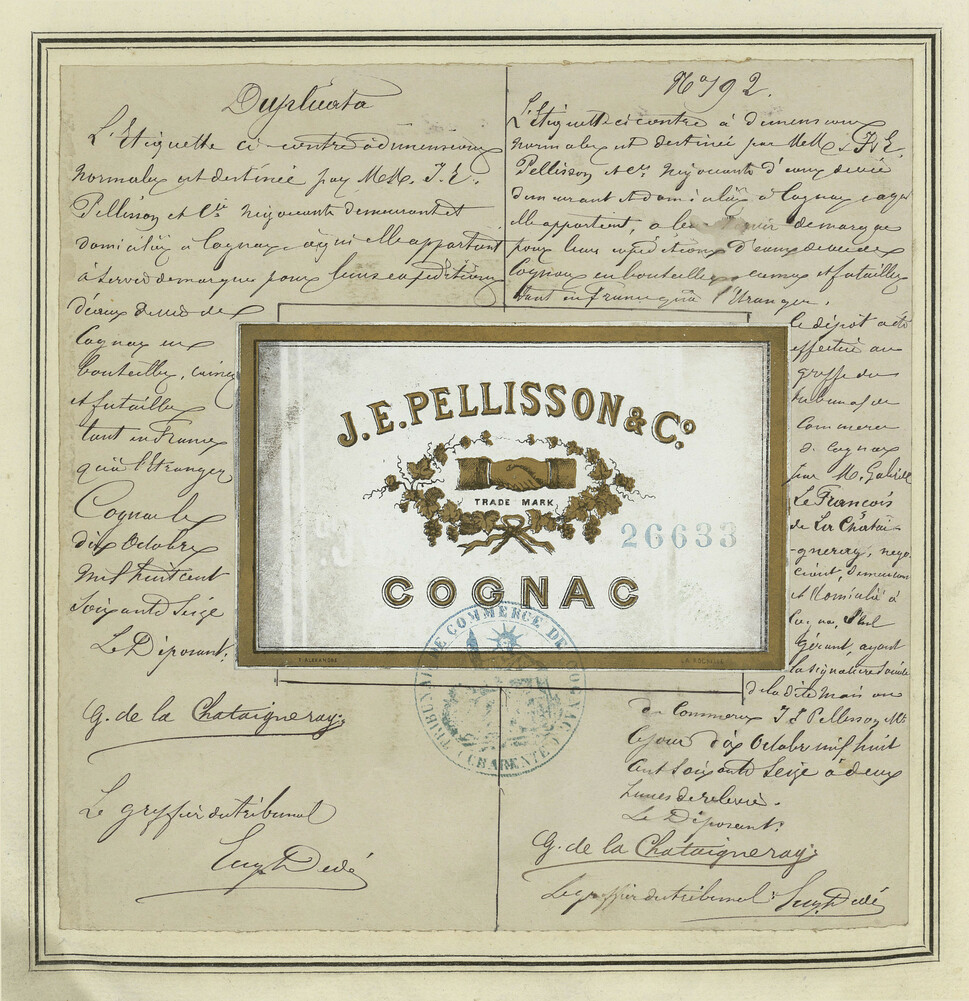 Duplicata
L'Etiquette ci-contre à dimensions
normales est destinée par M.M. J. E.
Pellisson et Cie négociants demeurant et
domiciliés à Cognac, à qui elle appartient
à servir de marque pour leurs expéditions
d'eaux de vie de
Cognac en
bouteilles, caisses
et futailles
tant en France
qu'à l'Etranger
Cognac le
dix Octobre
mil huit cent
soixante seize
Le Déposant:
G. de la Chataigneray
Le greffier du tribunal
Dedé
No 792.
L'Etiquette ci contre à dimensions
normales est destinée par M.M. J. E.
Pellisson et Cie négociants d'eaux de vie
demeurant et domiciliés à Cognac
elle appartient, à de marque
pour leurs expéditions d'eaux de vie de
Cognac en bouteilles, caisses et futailles
tant en France qu'à l'Etranger.
Le dépôt a été
effectué au
greffe du
tribunal de
Commerce
de Cognac
par M. Gabriel
Le François
de La Chatai-
-gneray, négo-
ciant, demeurant
et domicilié à
Cognac, seul
Gérant, ayant
la signature sociale
de la dite maison
de Commerce J. E. Pellisson
Ce jour dix Octobre mil huit
cent soixante seize à deux
heures de relevée.
Le Déposant:
G. de la Chataigneray
Le greffier du tribunal Dedé
J.E. PELLISSON & Co.
TRADE MARK
26633
COGNAC
TRIBUNAL DE COMMERCE DE COGNAC
(CHARENTE)